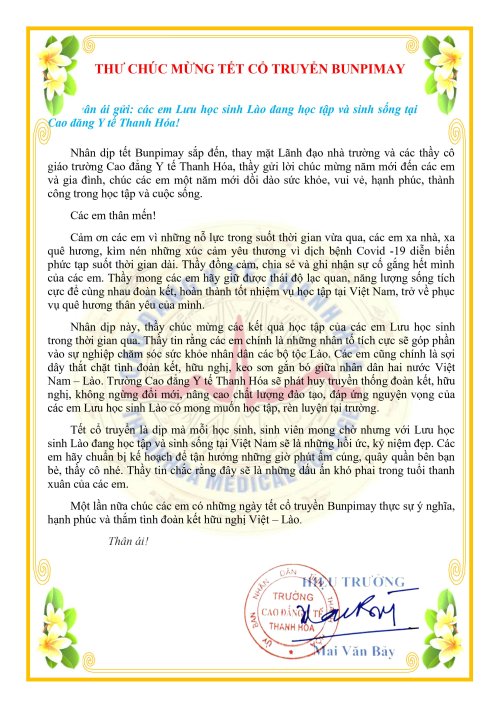 THƯ CHÚC MỪNG TẾT CỔ TRUYỀN BUNPIMAY
ân ái gửi: các em Lưu học sinh Lào đang học tập và sinh sống tại
Cao đẳng Y tế Thanh Hóa!
Nhân dịp tết Bunpimay sắp đến, thay mặt Lãnh đạo nhà trường và các thầy cô
giáo trường Cao đẳng Y tế Thanh Hóa, thầy gửi lời chúc mừng năm mới đến các em
và gia đình, chúc các em một năm mới dồi dào sức khỏe, vui vẻ, hạnh phúc, thành
công trong học tập và cuộc sống.
Các em thân mến!
Cảm ơn các em vì những nỗ lực trong suốt thời gian vừa qua, các em xa nhà, xa
quê hương, kìm nén những xúc cảm yêu thương vì dịch bệnh Covid -19 diễn biến
phức tạp suốt thời gian dài. Thầy đồng cảm, chia sẻ và ghi nhận sự cố gắng hết mình
của các em. Thầy mong các em hãy giữ được thái độ lạc quan, năng lượng sống tích
cực để cùng nhau đoàn kết, hoàn thành tốt nhiệm vụ học tập tại Việt Nam, trở về phục
vụ quê hương thân yêu của mình.
Nhân dịp này, thầy chúc mừng các kết quả học tập của các em Lưu học sinh
trong thời gian qua. Thầy tin rằng các em chính là những nhân tố tích cực sẽ góp phần
vào sự nghiệp chăm sóc sức khỏe nhân dân các bộ tộc Lào. Các em cũng chính là sợi
dây thắt chặt tình đoàn kết, hữu nghị, keo sơn gắn bó giữa nhân dân hai nước Việt
Nam – Lào. Trường Cao đẳng Y tế Thanh Hóa sẽ phát huy truyền thống đoàn kết, hữu
nghị, không ngừng đổi mới, nâng cao chất lượng đào tạo, đáp ứng nguyện vọng của
các em Lưu học sinh Lào có mong muốn học tập, rèn luyện tại trường.
Tết cổ truyền là dịp mà mỗi học sinh, sinh viên mong chờ nhưng với Lưu học
sinh Lào đang học tập và sinh sống tại Việt Nam sẽ là những hồi ức, kỷ niệm đẹp. Các
em hãy chuẩn bị kế hoạch để tận hưởng những giờ phút ấm cúng, quây quần bên bạn
bè, thầy cô nhé. Thầy tin chắc rằng đây sẽ là những dấu ấn khó phai trong tuổi thanh
xuân của các em.
Một lần nữa chúc các em có những ngày tết cổ truyền Bunpimay thực sự ý nghĩa,
hạnh phúc và thắm tình đoàn kết hữu nghị Việt – Lào.
Thân ái!
HIỆU TRƯỞNG
TRƯỜNG
CAO ĐẲNG Y TẾ
THANH HÓA
Mai Văn Bảy